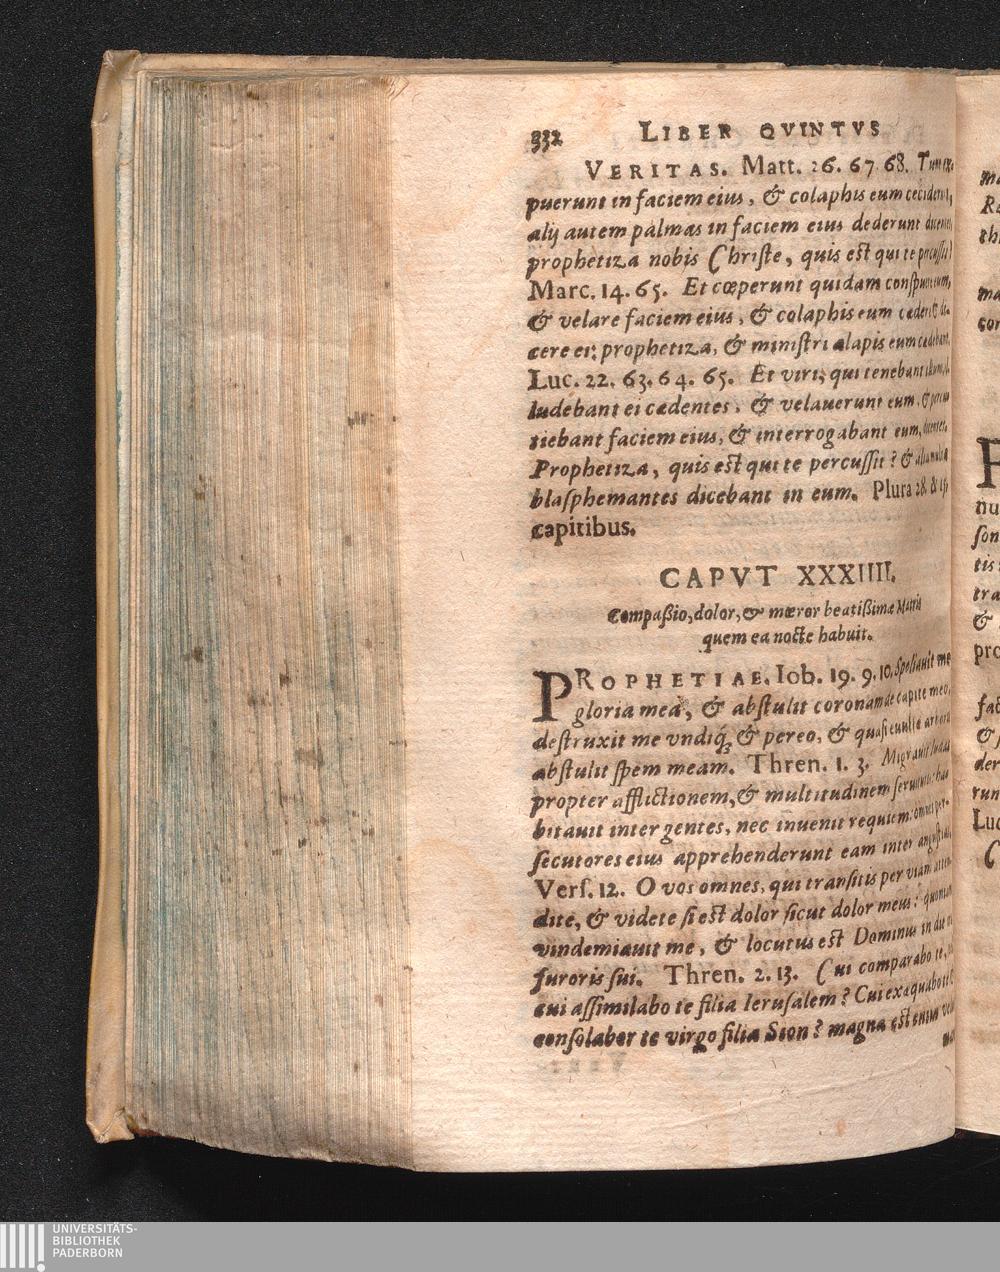 332 LIBER QVINTVS
VERITAS. Matt. 26. 67. 68. Tunc ex-
puerunt in faciem eius, & colaphis eum ceciderunt,
alij autem palmas in faciem eius dederunt dicentes
prophetiza nobis Christe, quis est qui te percussit?
Marc. 14. 65. Et cœperunt quidam conspuere eum,
& velare faciem eius, & colaphis eum cedere & di-
cere ei: prophetiza, & ministri alapis eum cædebant.
Luc. 22. 63. 64. 65. Et viri, qui tenebant illum, il-
ludebant ei cædentes, & velauerunt eum, & percu
tiebant faciem eius, & interrogabant eum, dicentes,
Prophetiza, quis est qui te percussit? & alia multa
blasphemantes dicebant in eum. Plura 28. &
capitibus.
CAPVT XXXIIII.
Compaßio, dolor, & mœror beatißimæ Matris
quem ea nocte habuit.
PROPHETIAE. Iob. 19. 9. 10. Spoliauit me
gloria mea, & abstulit coronam de capite meo,
destruxit me vndiq; & pereo, & quasi euulsæ arbori
abstulit spem meam. Thren. 1. 3. Migrauit Iudas
propter afflictionem, & multitudinem seruitutis: ha
bitauit inter gentes, nec inuenit requiem: omnes per-
secutores eius apprehenderunt eam inter angustias.
Vers. 12. O vos omnes, qui transitis per viam atten
dite, & videte si est dolor sicut dolor meus: quoniam
vindemiauit me, & locutus est Dominus in die
furoris sui. Thren. 2. 13. Cui comparabo te,
cui assimilabo te filia Ierusalem? Cui exæquabo te &
consolabor te virgo filia Sion? magna est enim
UNIVERSITÄTS-
BIBLIOTHEK
PADERBORN